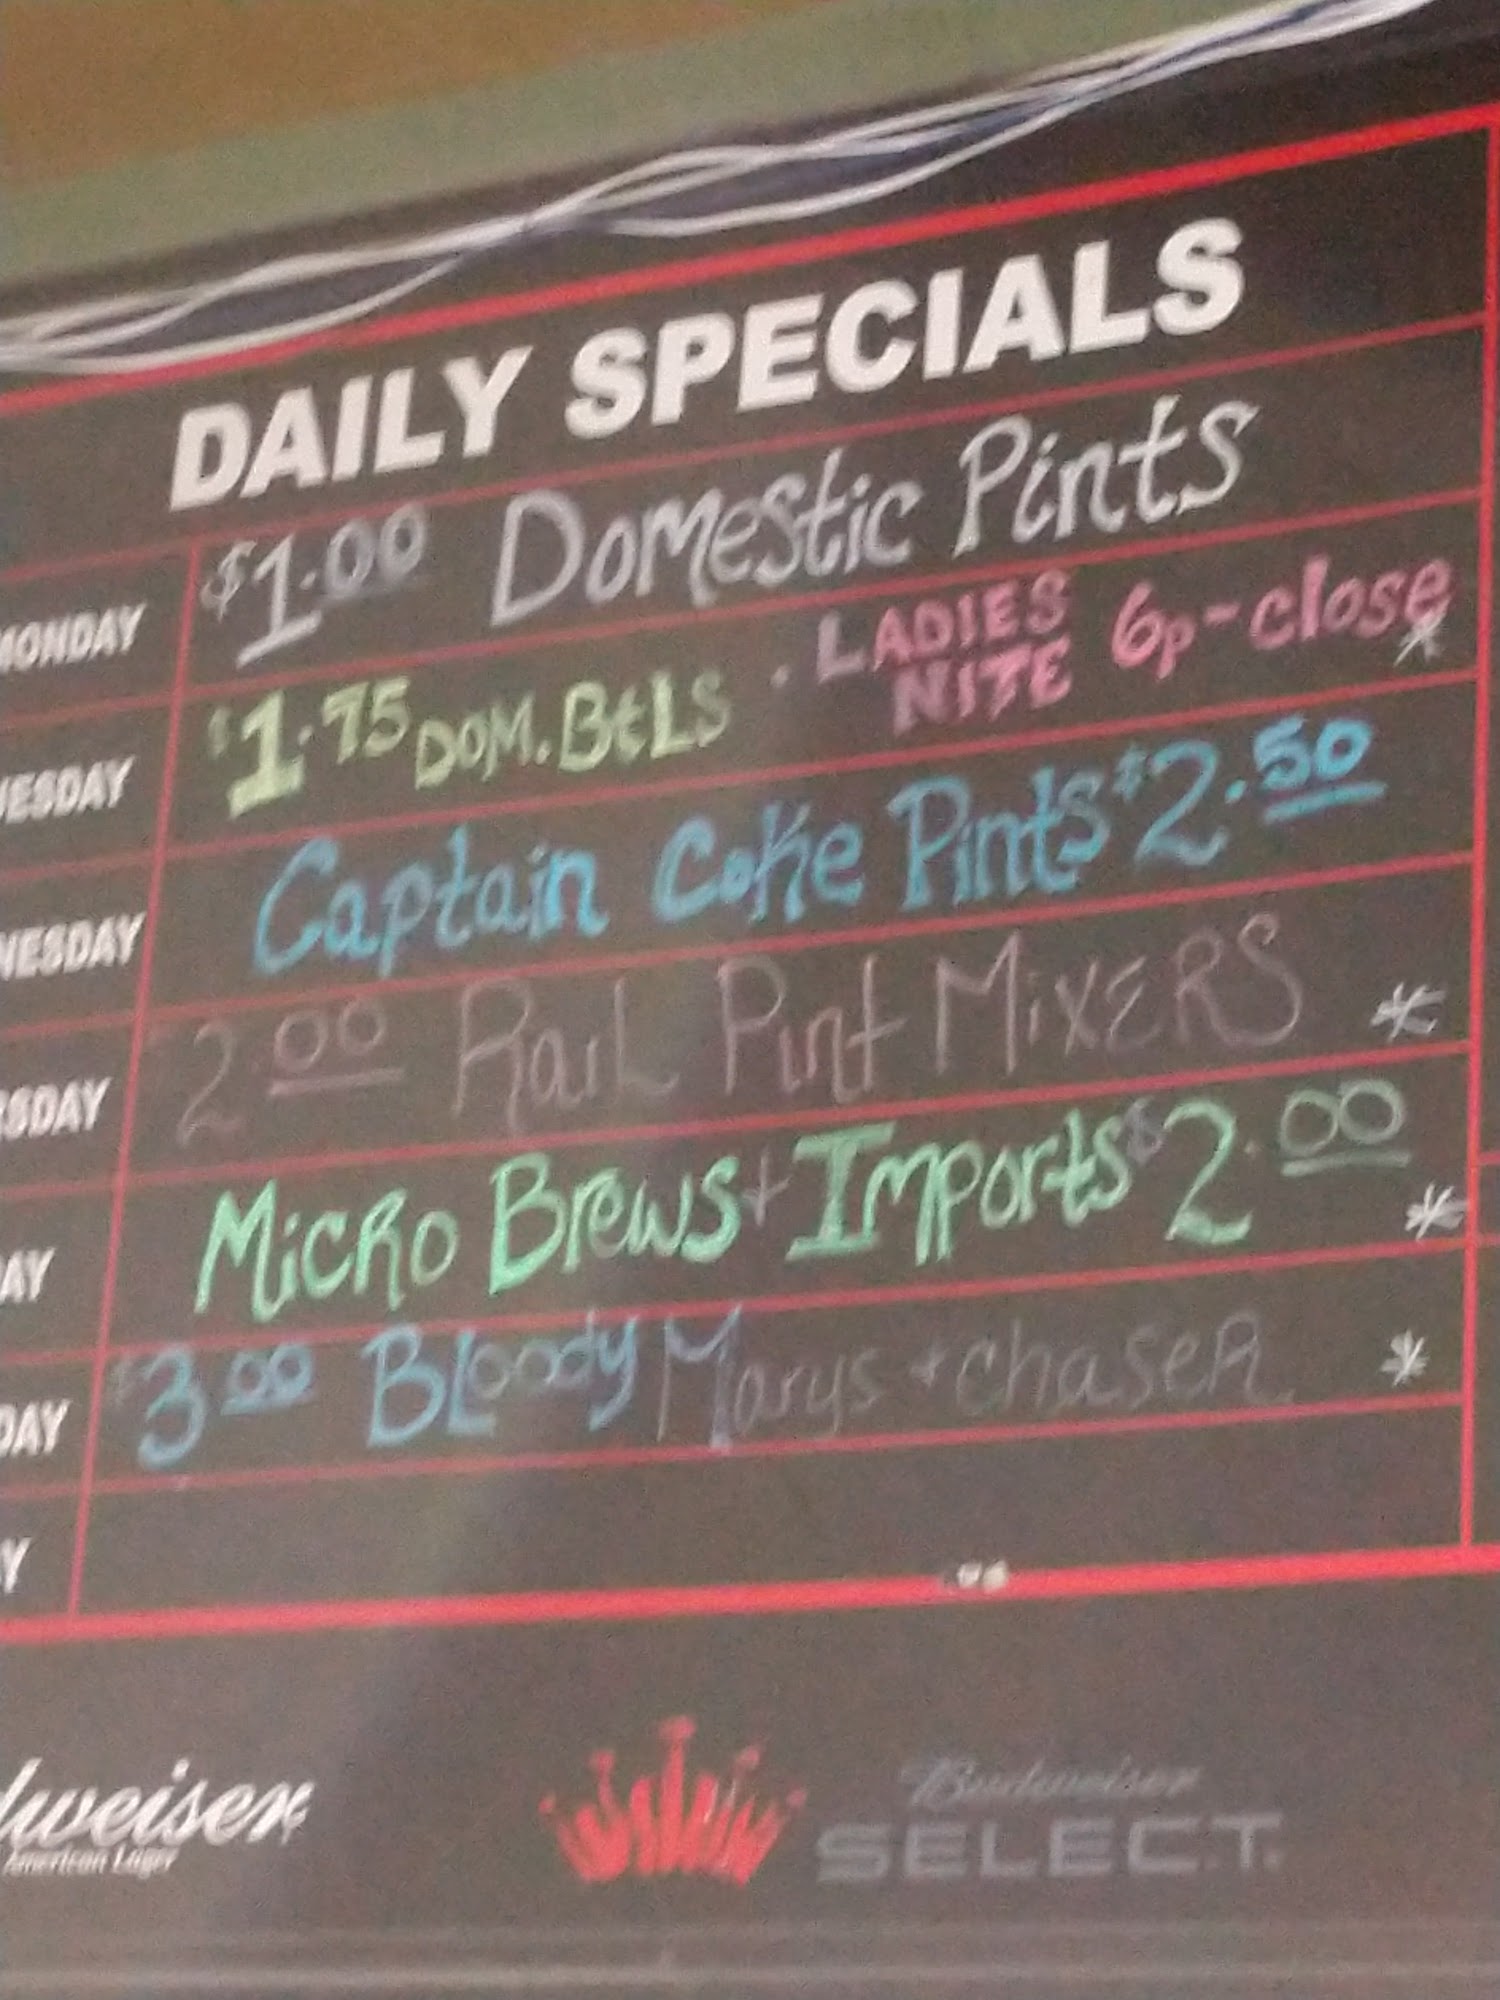 DAILY SPECIALS
MONDAY $1.00 Domestic Pints
UESDAY $1.75 DOM. BtLS . LADIES NITE 6p-close *
NESDAY Captain Coke Pints $2.50
SDAY 2.00 Rail Pint MIXERS *
AY Micro Brews + Imports $2.00 *
DAY $3.00 Bloody Marys + chaser *
Y
dweiser
American Lager
Budweiser
SELECT